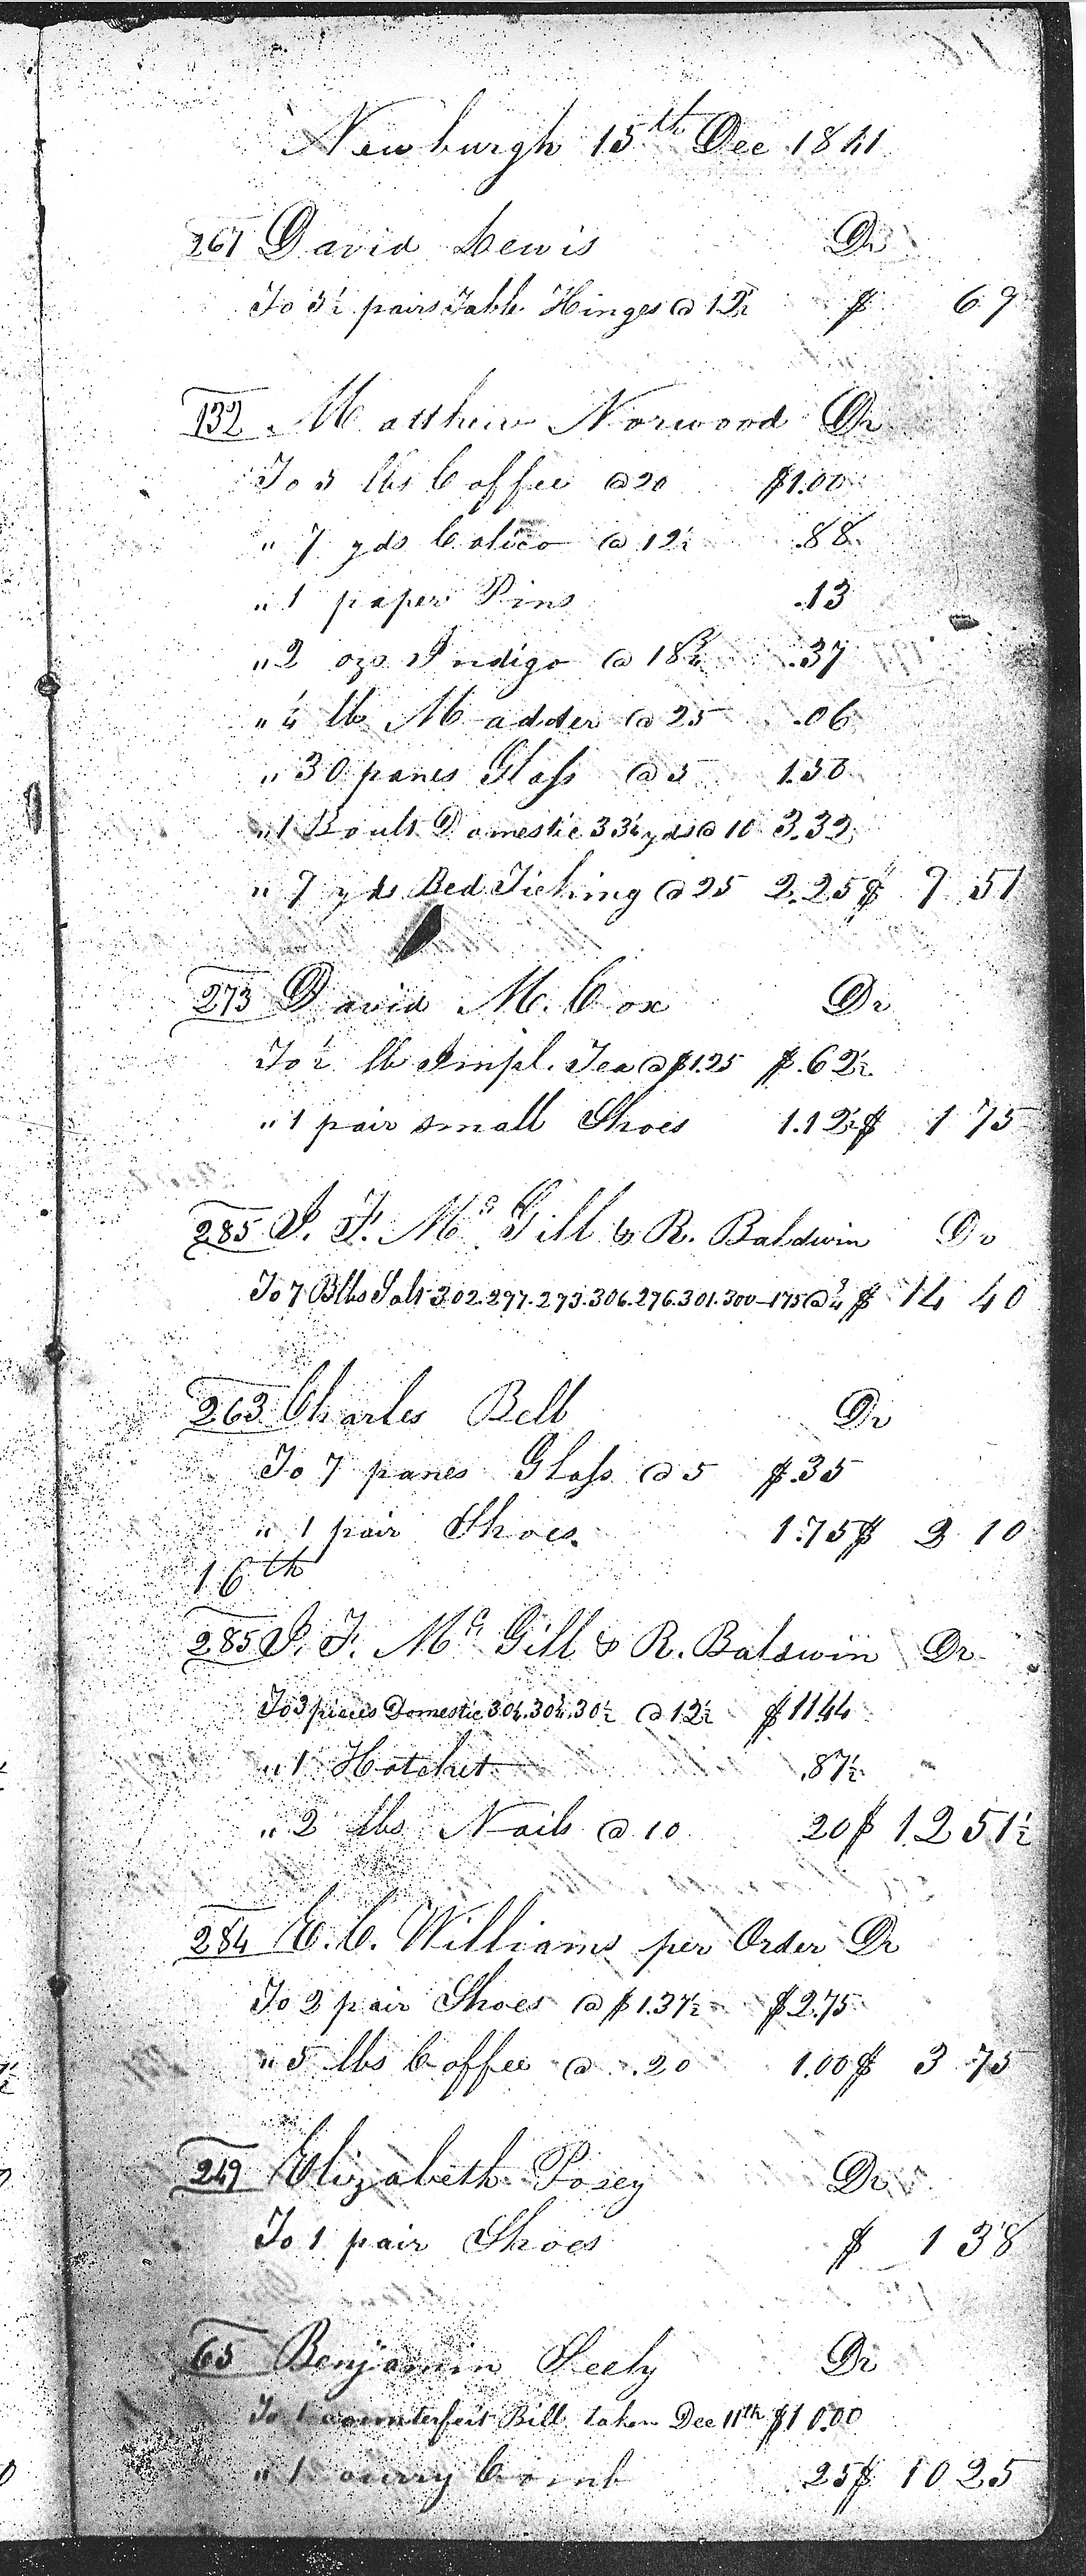 Newburgh 15th Dec 1841
267 David Lewis Dr
To 5½ pairs Table Hinges @ 12½ $ 69
132 Matthew Norwood Dr
To 5 lbs Coffee @ 20 $1.00
" 7 yds Calico @ 12½ .88
" 1 paper Pins .13
" 2 ozs Indigo @ 18¾ .37
" ¼ lb Madder @ 25 .06
" 30 panes Glass @ 5 1.50
" 1 Boult Domestic 33¼ yds @ 10 3.32
" 9 yds Bed Ticking @ 25 2.25 $ 9 51
273 David M. Cox Dr
To ½ lb Impl. Tea @ $1.25 $.62½
" 1 pair small Shoes 1.12½ $ 1 75
285 I. F. Mc Gill & R. Baldwin Dr
To 7 Bbls Salt 302.297.273.306.276.301.300–175 @ ¾ $ 14 40
263 Charles Bell Dr
To 7 panes Glass @ 5 $.35
" 1 pair Shoes. 1.75 $ 2 10
16th
285 I. F. Mc Gill & R. Baldwin Dr
To 3 pieces Domestic 30½.30½.30½ @ 12½ $11.44
" 1 Hatchet .87½
" 2 lbs Nails @ 10 20 $ 12 51½
284 E. C. Williams per Order Dr
To 2 pair Shoes @ $1.37½ $2.75
" 5 lbs Coffee @ .20 1.00 $ 3 75
249 Elizabeth Posey Dr
To 1 pair Shoes $ 1 38
65 Benjamin Seely Dr
To 1 counterfeit Bill taken Dec 11th $10.00
" 1 curry Comb .25 $ 10 25